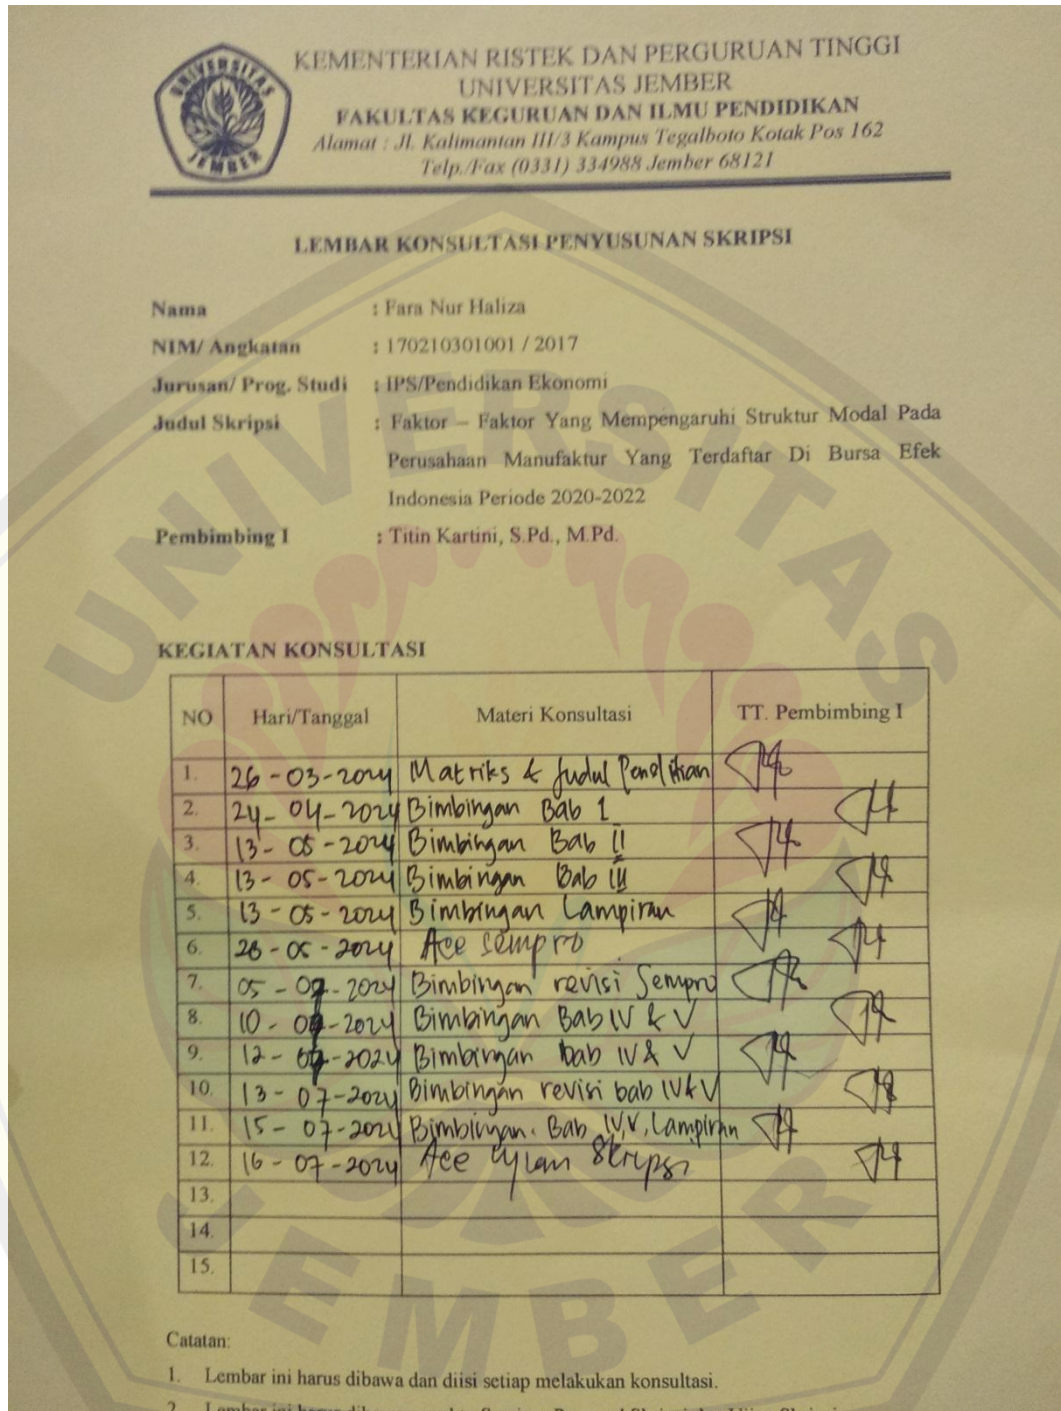 KEMENTERIAN RISTEK DAN PERGURUAN TINGGI
UNIVERSITAS JEMBER
FAKULTAS KEGURUAN DAN ILMU PENDIDIKAN
Alamat : Jl. Kalimantan III/3 Kampus Tegalboto Kotak Pos 162
Telp./Fax (0331) 334988 Jember 68121
UNIVERSITAS
JEMBER
LEMBAR KONSULTASI PENYUSUNAN SKRIPSI
Nama : Fara Nur Haliza
NIM/ Angkatan : 170210301001 / 2017
Jurusan/ Prog. Studi : IPS/Pendidikan Ekonomi
Judul Skripsi : Faktor – Faktor Yang Mempengaruhi Struktur Modal Pada
Perusahaan Manufaktur Yang Terdaftar Di Bursa Efek
Indonesia Periode 2020-2022
Pembimbing I : Titin Kartini, S.Pd., M.Pd.
KEGIATAN KONSULTASI
NO Hari/Tanggal Materi Konsultasi TT. Pembimbing I
1. 26-03-2024 Matriks & Judul Penelitian
2. 24-04-2024 Bimbingan Bab I
3. 13-05-2024 Bimbingan Bab II
4. 13-05-2024 Bimbingan Bab III
5. 13-05-2024 Bimbingan Lampiran
6. 28-05-2024 Acc sempro
7. 05-07-2024 Bimbingan revisi Sempro
8. 10-07-2024 Bimbingan Bab IV & V
9. 12-07-2024 Bimbingan bab IV & V
10. 13-07-2024 Bimbingan revisi bab IV & V
11. 15-07-2024 Bimbingan. Bab IV, V, Lampiran
12. 16-07-2024 Acc Ujian Skripsi
13.
14.
15.
Catatan:
1. Lembar ini harus dibawa dan diisi setiap melakukan konsultasi.
2. Lembar ini harus
UNIVERSITAS
JEMBER